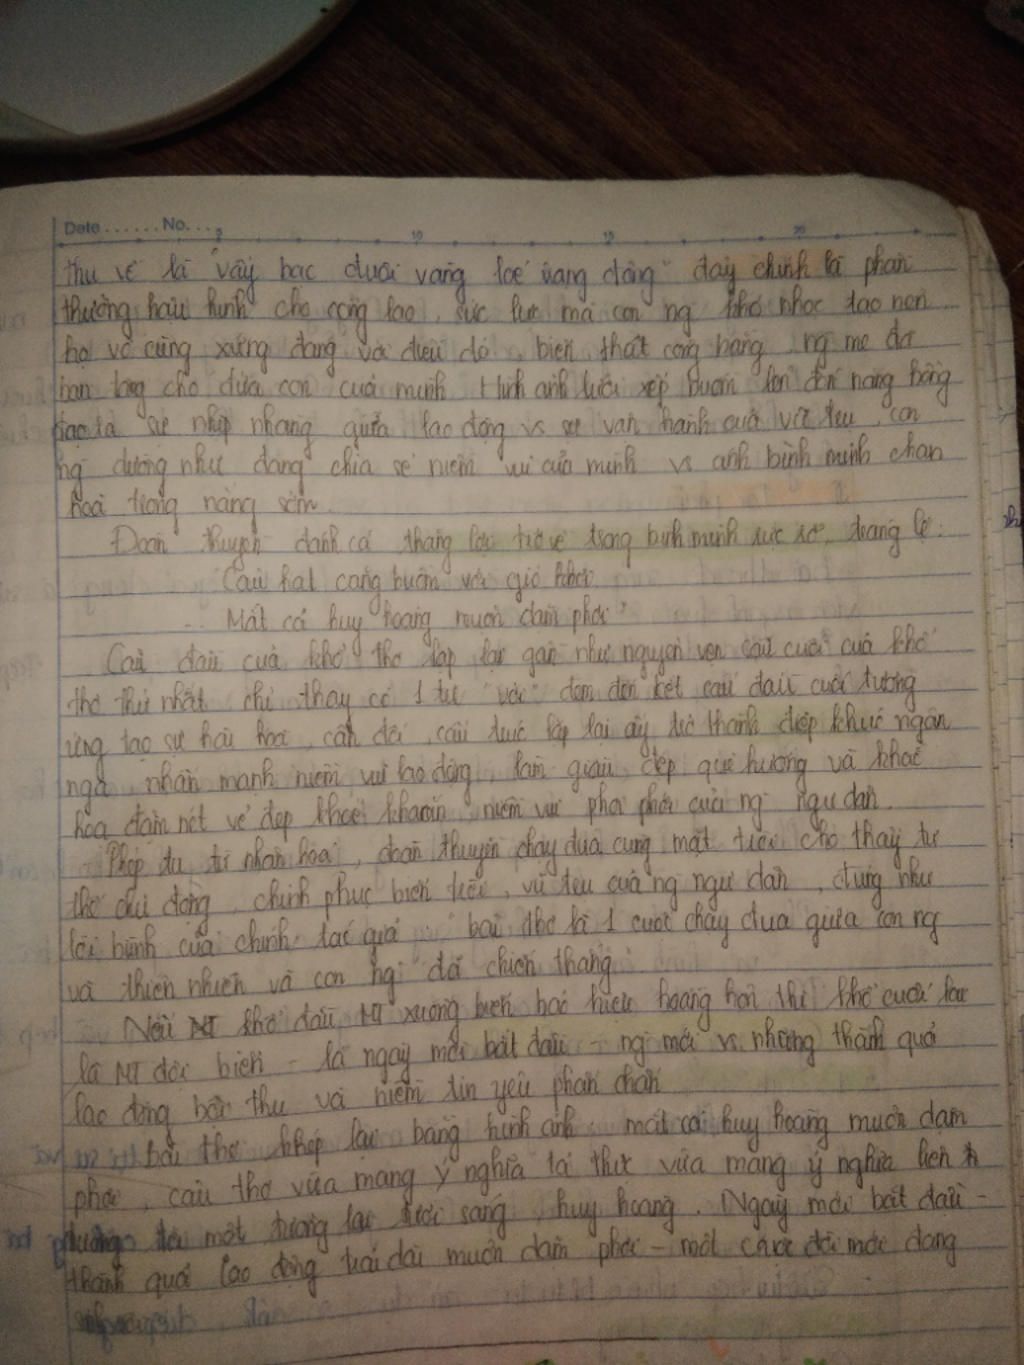 Date ...... No. ... 5 10 15 20
thu về là "vẩy bạc đuôi vàng loé rạng đông" đây chính là phần
thưởng hậu hĩnh cho công lao, sức lực mà con ng khó nhọc tạo nên
họ vô cùng xứng đáng với điều đó, biển thật công bằng, ng mẹ đã
ban tặng cho đứa con của mình. Hình ảnh lưới xếp buồm lên đón nắng hồng
tạo ra sự nhịp nhàng giữa lao động vs sự vận hành của vũ trụ, con
ng dường như đang chia sẻ niềm vui của mình vs ánh bình minh chan
hoà trong nắng sớm.
Đoàn thuyền đánh cá thắng lợi trở về trong bình minh rực rỡ, tráng lệ:
Câu hát căng buồm với gió khơi
... Mắt cá huy hoàng muôn dặm phơi"
Câu đầu của khổ thơ lặp lại gần như nguyên vẹn câu cuối của khổ
thơ thứ nhất chỉ thay có 1 từ "với" đem đến kết cấu đầu cuối tương
ứng tạo sự hài hoà, cân đối, cấu trúc lặp lại ấy trở thành điệp khúc ngân
nga, nhấn mạnh niềm vui lao động, làm giàu, đẹp quê hương và khắc
hoạ đậm nét vẻ đẹp khoẻ khoắn, niềm vui phơi phới của ng ngư dân.
Phép tu từ nhân hoá, đoàn thuyền chạy đua cùng mặt trời cho thấy tư
thế chủ động, chinh phục biển trời, vũ trụ của ng ngư dân, đúng như
lời bình của chính tác giả: "bài thơ là 1 cuộc chạy đua giữa con ng
và thiên nhiên và con ng đã chiến thắng
Nếu khổ đầu, MT xuống biển báo hiệu hoàng hôn thì khổ cuối lại
là MT đội biển - là ngày mới bắt đầu - ng mới vs những thành quả
lao động bội thu và niềm tin yêu phấn chấn
Bài thơ khép lại bằng hình ảnh: mắt cá huy hoàng muôn dặm
phơi, câu thơ vừa mang ý nghĩa tả thực vừa mang ý nghĩa liên
tưởng tới một tương lai tươi sáng, huy hoàng. Ngày mới bắt đầu -
thành quả lao động trải dài muôn dặm phơi - một cuộc đời mới đang